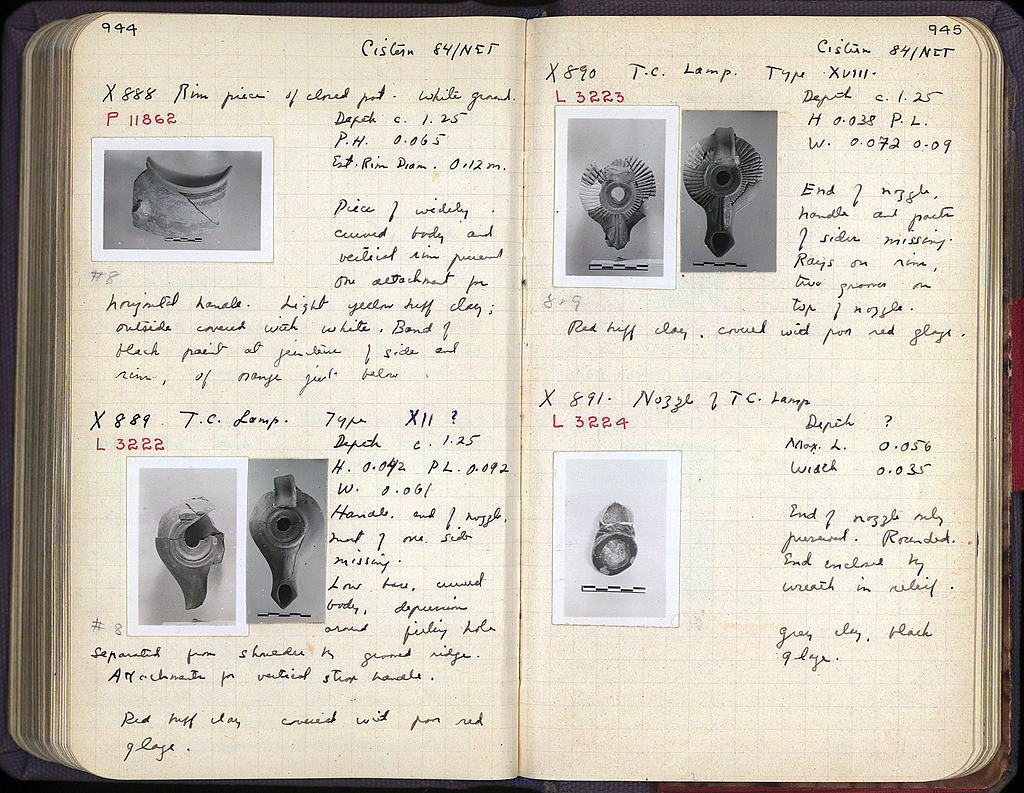 944
Cistern 84/NET
X 888 Rim piece of closed pot. White ground.
P 11862
Depth c. 1.25
P.H. 0.065
Est. Rim Diam. 0.12 m.
Piece of widely
curved body and
vertical rim preserved
one attachment for
#8
horizontal handle. Light yellow buff clay;
outside covered with white. Band of
black paint at juncture of side and
rim, of orange just below
X 889 T.C. Lamp. Type XII ?
L 3222
Depth c. 1.25
H. 0.042 P.L. 0.092
W. 0.061
Handle, end of nozzle,
most of one side
missing.
Low base, curved
body, depression
around filling hole
# 8
separated from shoulder by grooved ridge.
Attachments for vertical strap handle.
Red buff clay covered with poor red
glaze.
945
Cistern 84/NET
X 890 T.C. Lamp. Type XVIII.
L 3223
Depth c. 1.25
H 0.038 P.L.
W. 0.072 0.09
End of nozzle,
handle and parts
of sides missing.
Rays on rim,
two grooves on
top of nozzle.
8.9
Red buff clay, covered with poor red glaze.
X 891. Nozzle of T.C. Lamp
L 3224
Depth ?
Max. L. 0.056
Width 0.035
End of nozzle only
preserved. Rounded.
End enclosed by
wreath in relief.
grey clay, black
glaze.